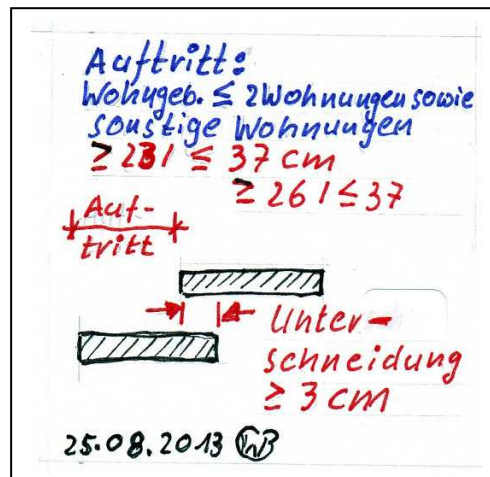 Auftritt:
Wohngeb. ≤ 2 Wohnungen sowie
sonstige Wohnungen
≥ 23 / ≤ 37 cm
≥ 26 / ≤ 37
Auf-
tritt
Unter-
schneidung
≥ 3 cm
25.08.2013